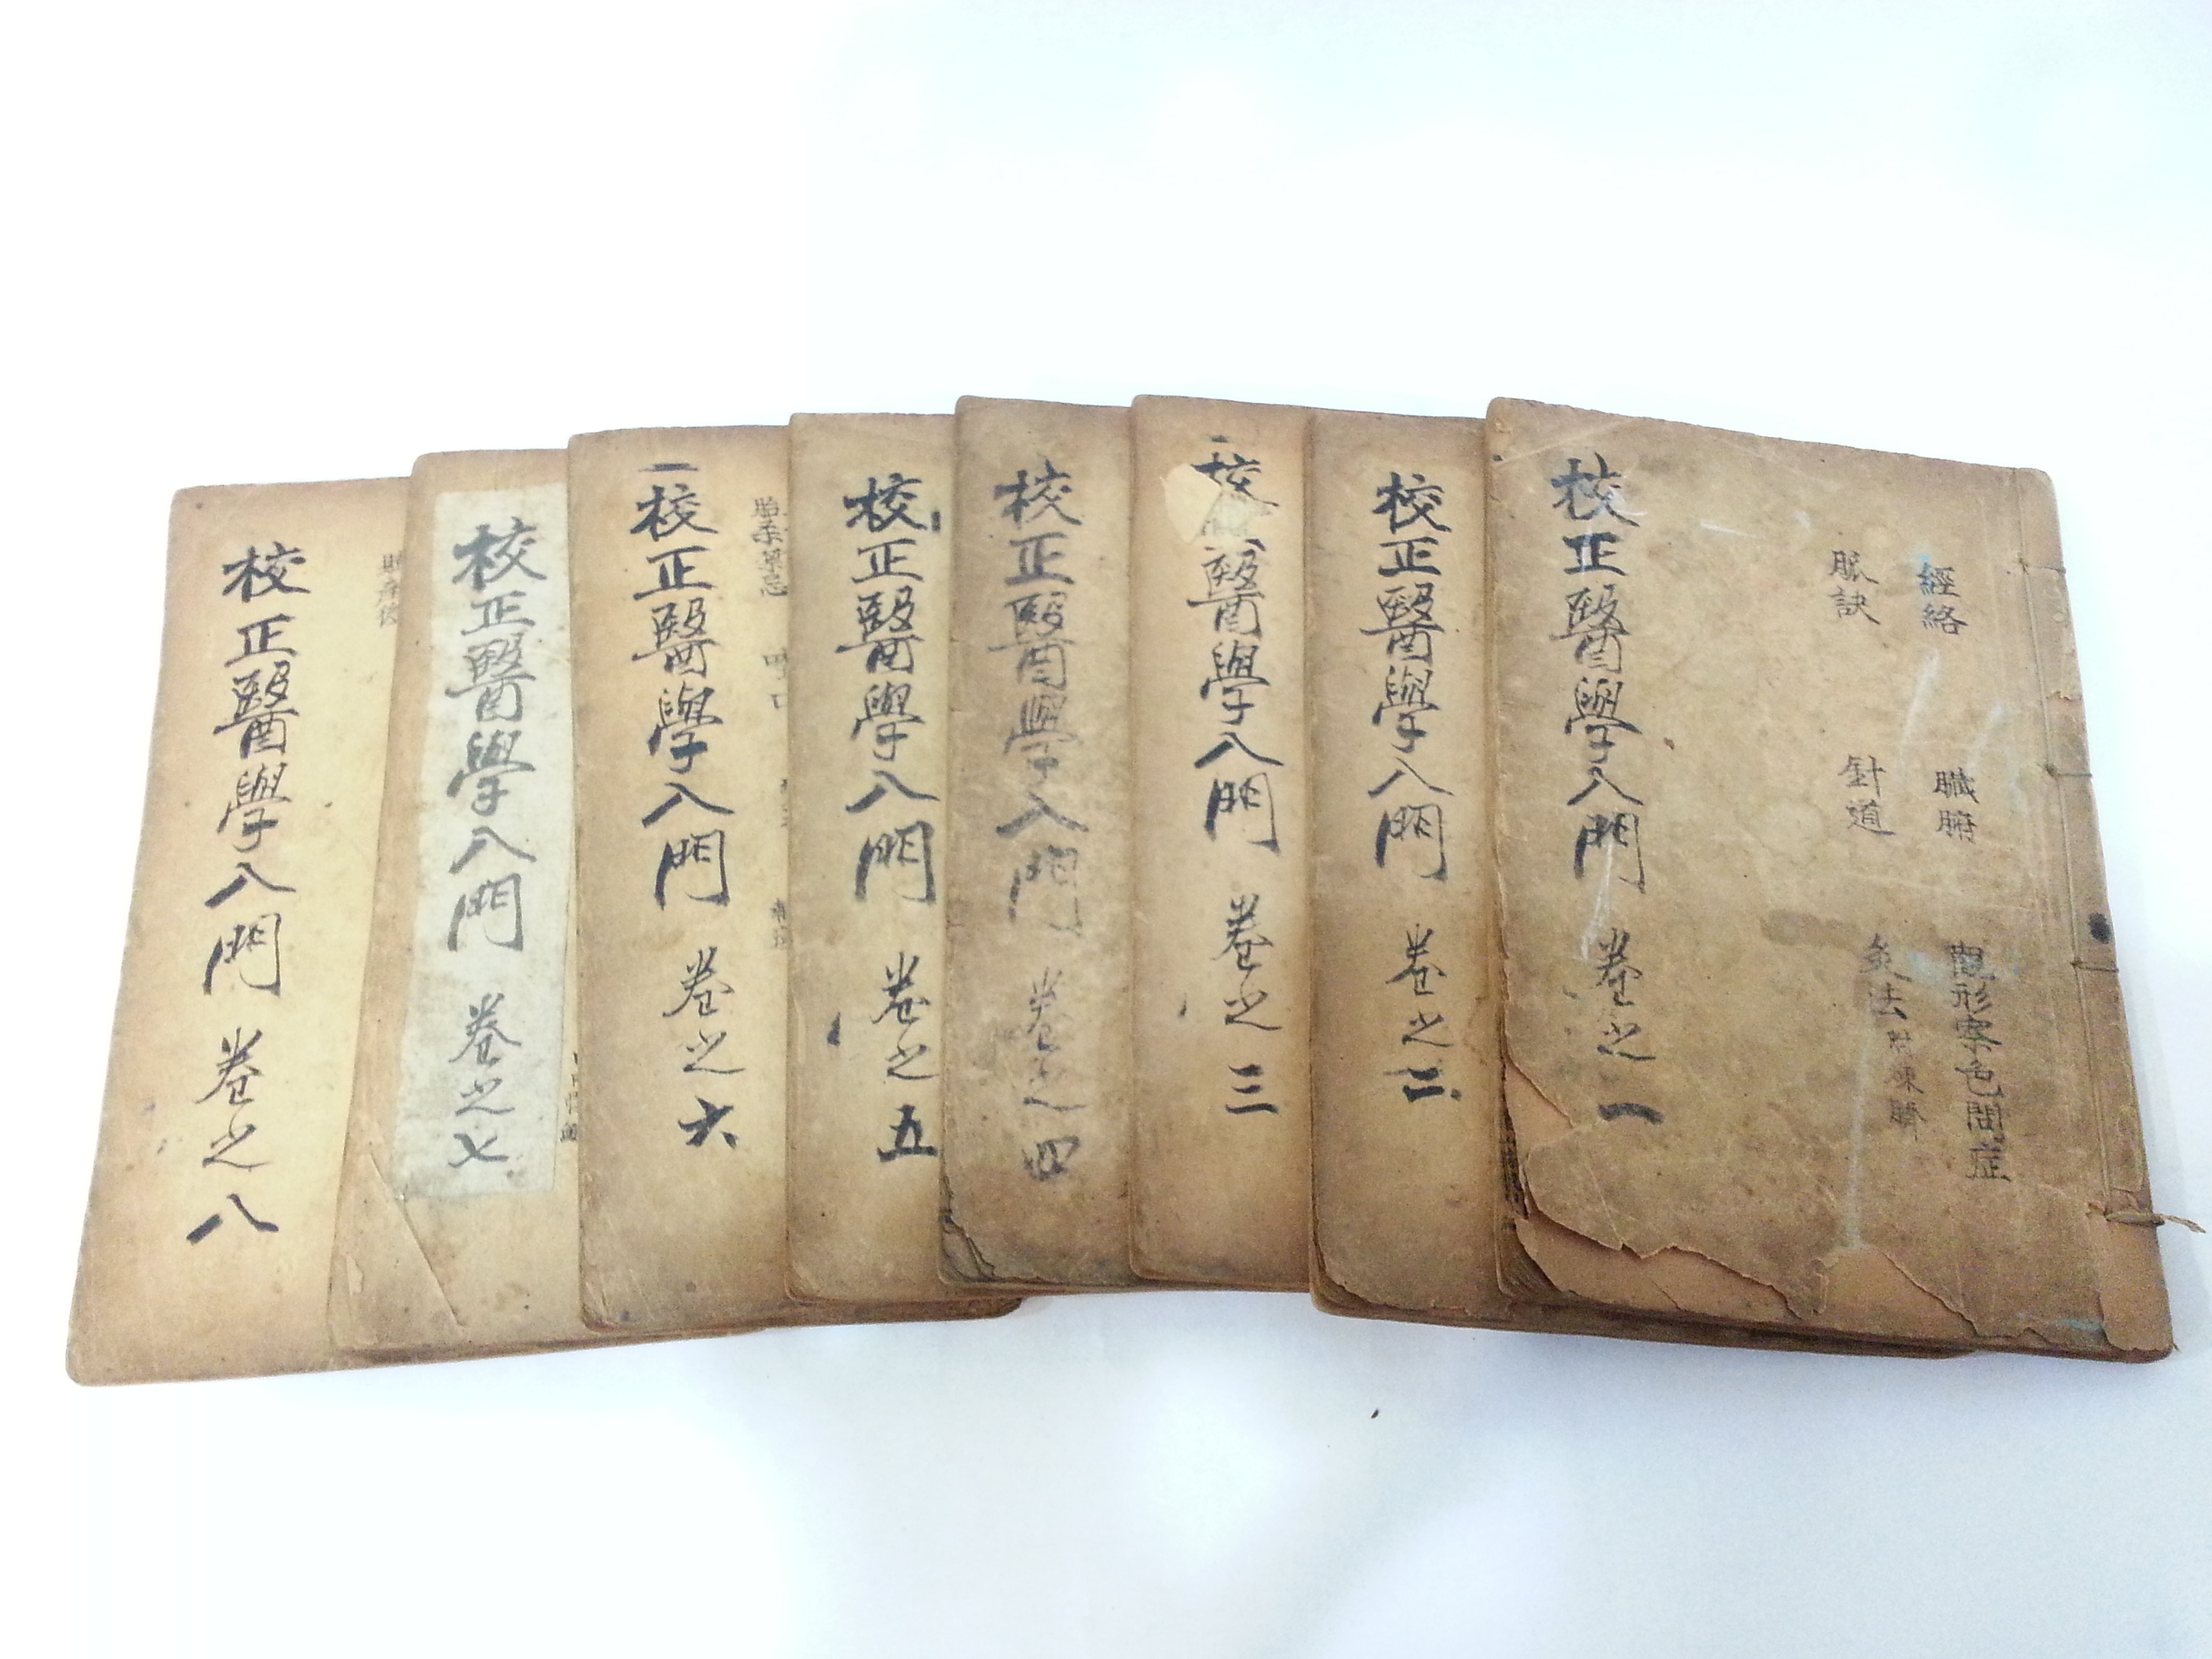 經絡 臟腑 觀形察色問症
脈訣 針道 灸法附煉臍
校正醫學入門 卷之一
校正醫學入門 卷之二
校正醫學入門 卷之三
校正醫學入門 卷之四
校正醫學入門 卷之五
胎產禁忌
校正醫學入門 卷之六
校正醫學入門 卷之七
校正醫學入門 卷之八